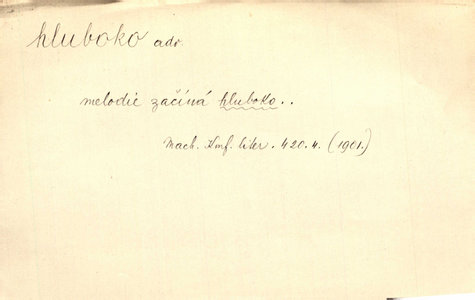 hluboko adv.
melodie začíná hluboko..
Mach. Konf. liter. 420.4. (1901.)